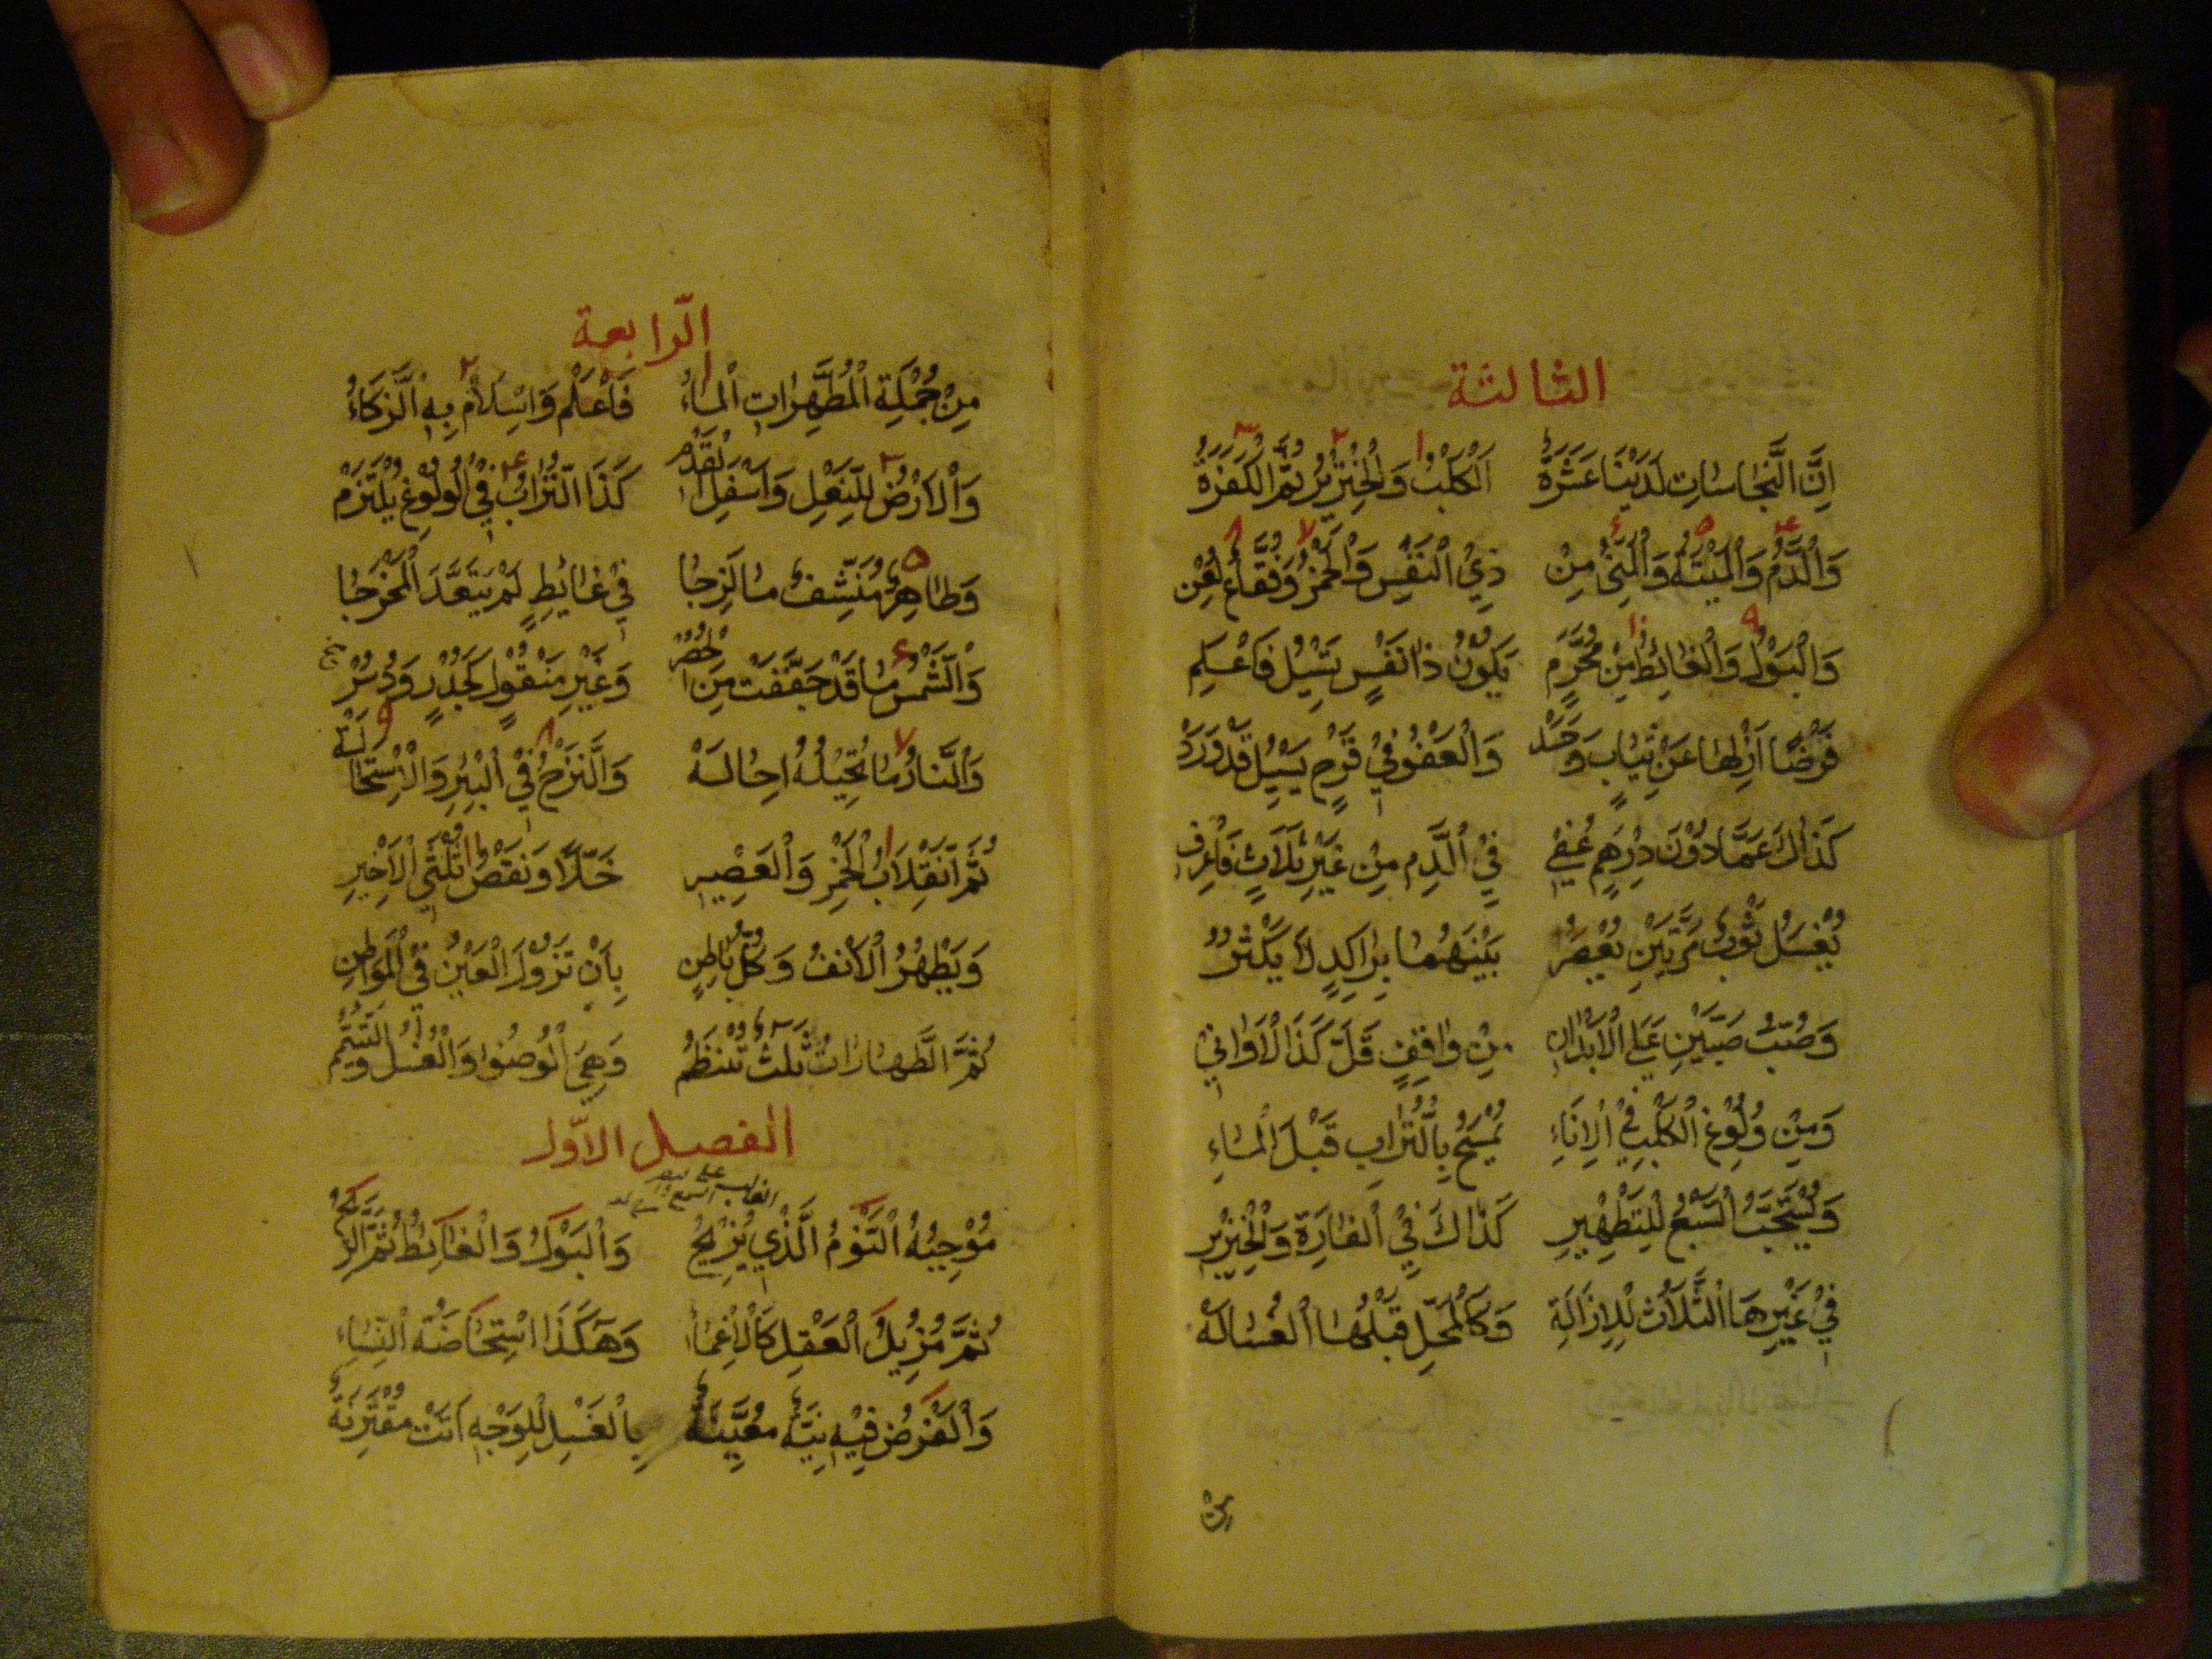 الثالثة
اِنَّ النَّجاسَاتِ لَدَيْنَا عَشَرَةٌ اَلْكَلْبُ وَالْخِنْزِيْرُ ثُمَّ الْكَفَرَةُ
١ ٢ ٣
وَالدَّمُ وَالْمَيْتَةُ وَالْمَنِيُّ مِنْ ذِيْ النَّفْسِ وَالْخَمْرُ وَفُقَّاعٌ لُعِنْ
٤ ٥ ٦ ٧ ٨
وَالْبَوْلُ وَالْغَائِطُ مِنْ مُحَرَّمٍ يَكُوْنُ ذَا نَفْسٍ تَسِيْلُ فَاعْلِمِ
٩ ١٠
فَرْضًا اَزِلْهَا عَنْ ثِيَابٍ وَجَسَدْ وَالْعَفْوُ فِيْ قَرْحٍ يَسِيْلُ قَدْ وَرَدْ
كَذَاكَ عَمَّا دُوْنَ دِرْهَمٍ عُفِيْ فِيْ الدَّمِ مِنْ غَيْرِ ثَلَاثٍ فَاعْرِفِ
يُغْسَلُ ثَوْبٌ مَرَّتَيْنِ يُعْصَرُ بَيْنَهُمَا بِرَاكِدٍ لَا يَكْثُرُ
وَصُبَّ صَبَّيْنِ عَلَى الْاَبْدَانِ مِنْ وَاقِفٍ قَلَّ كَذَا الْاَوَانِيْ
وَمِنْ وُلُوْغِ الْكَلْبِ فِيْ الْاِنَاءِ يُمْسَحُ بِالتُّرَابِ قَبْلَ الْمَاءِ
وَيُسْتَحَبُّ السَّبْعُ لِلتَّطْهِيْرِ كَذَاكَ فِيْ الْفَارَةِ وَالْخِنْزِيْرِ
فِيْ غَيْرِهَا الثَّلَاثُ لِلْاِزَالَةِ وَكَالْمَحَلِّ قَبْلَهَا الْغُسَالَة
مِنْ
الرّابعة
مِنْ جُمْلَةِ الْمُطَهِّرَاتِ الْمَاءُ فَاعْلَمْ وَاِسْلَامٌ بِهِ الزَّكَاءُ
١ ٢
وَالْاَرْضُ لِلنَّعْلِ وَاَسْفَلِ الْقَدَمْ كَذَا التُّرَابُ فِيْ الْوُلُوْغِ يُلْتَزَمْ
٣ ٤
وَطَاهِرٌ مُنَشِّفٌ مَا لَزِجَا فِيْ غَائِطٍ لَمْ يَتَعَدَّ الْمَخْرَجَا
٥
وَالشَّمْسُ مَا قَدْ جَفَّفَتْ مِنَ الْحُصُرْ وَغَيْرِ مَنْقُوْلٍ كَجُدْرٍ وَدُسُرْ
٦
وَالنَّارُ مَا تُحِيْلُهُ اِحَالَهْ وَالنَّزْحُ فِيْ الْبِئْرِ وَالْاِسْتِحَالَهْ
٧ ٨ ٩
ثُمَّ انْقِلَابُ الْخَمْرِ وَالْعَصِيْرِ خَلًّا وَنَقْصُ ثُلْثَيِ الْاَخِيْرِ
١٠ ١١
وَيَطْهُرُ الْاَنْفُ وَكُلُّ بَاطِنِ بِاَنْ تَزُوْلَ الْعَيْنُ فِيْ الْمَوَاطِنِ
ثُمَّ الطَّهَارَاتُ ثَلَثٌ تُنْظَمُ وَهِيَ الْوُضُوْءُ وَالْغُسْلُ وَالتَّيَمُّمُ
الفصل الاوّل
مُوْجِبُهُ النَّوْمُ الَّذِيْ يُزِيْحُ وَالْبَوْلُ وَالْغَائِطُ ثُمَّ الرِّيْحُ
ثُمَّ مُزِيْلُ الْعَقْلِ كَالْاِغْمَاءِ وَهَكَذَا اسْتِحَاضَةُ النِّسَاءِ
وَالْفَرْضُ فِيْهِ نِيَّةٌ مُعَيَّنَةٌ بِالْغَسْلِ لِلْوَجْهِ اَتَتْ مُقْتَرِنَةٌ